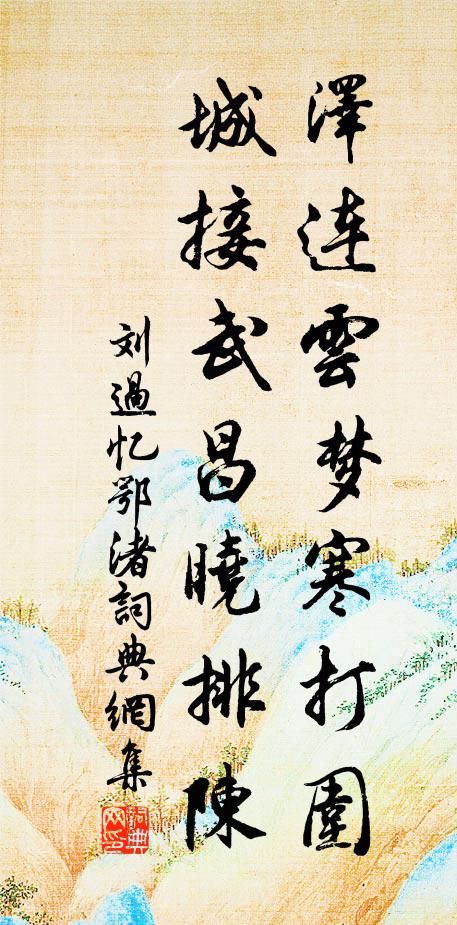 澤連雲梦寒打圍
城接武昌曉排陳
刘過忆鄂渚詞典網集
詞典网印